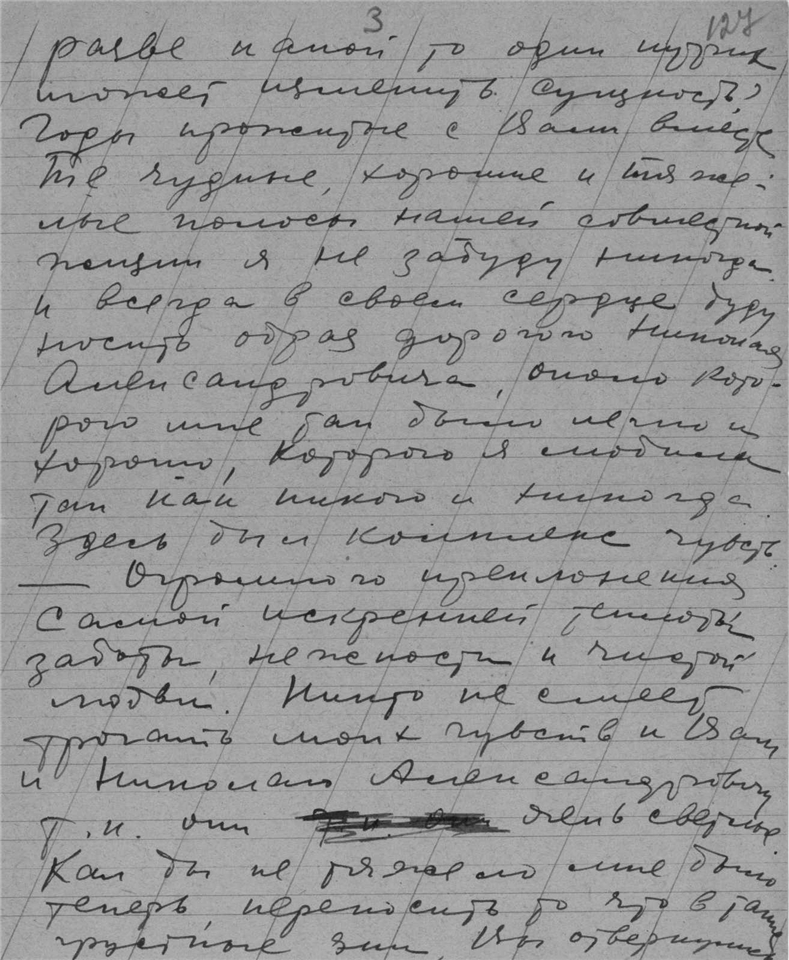 3 127
разве какой то один путник
может изменить сущность?
Годы прожитые с Вами вместе
Те чудные, хорошие и тяже-
лые полосы нашей совместной
жизни я не забуду никогда
и всегда в своем сердце буду
носить образ дорогого Николая
Александровича, около кото-
рого мне так было легко и
хорошо, которого я любила
так как никого и никогда.
Здесь был комплекс чувств
— Огромного преклонения
самой искренней теплоты
заботы, нежности и чистой
любви. Никто не смеет
трогать моих чувств к Вам
и Николаю Александровичу
т.к. они очень светлые.
Как бы не тяжело мне было
теперь переносить то что в такие
грустные дни, Вы отвернулись